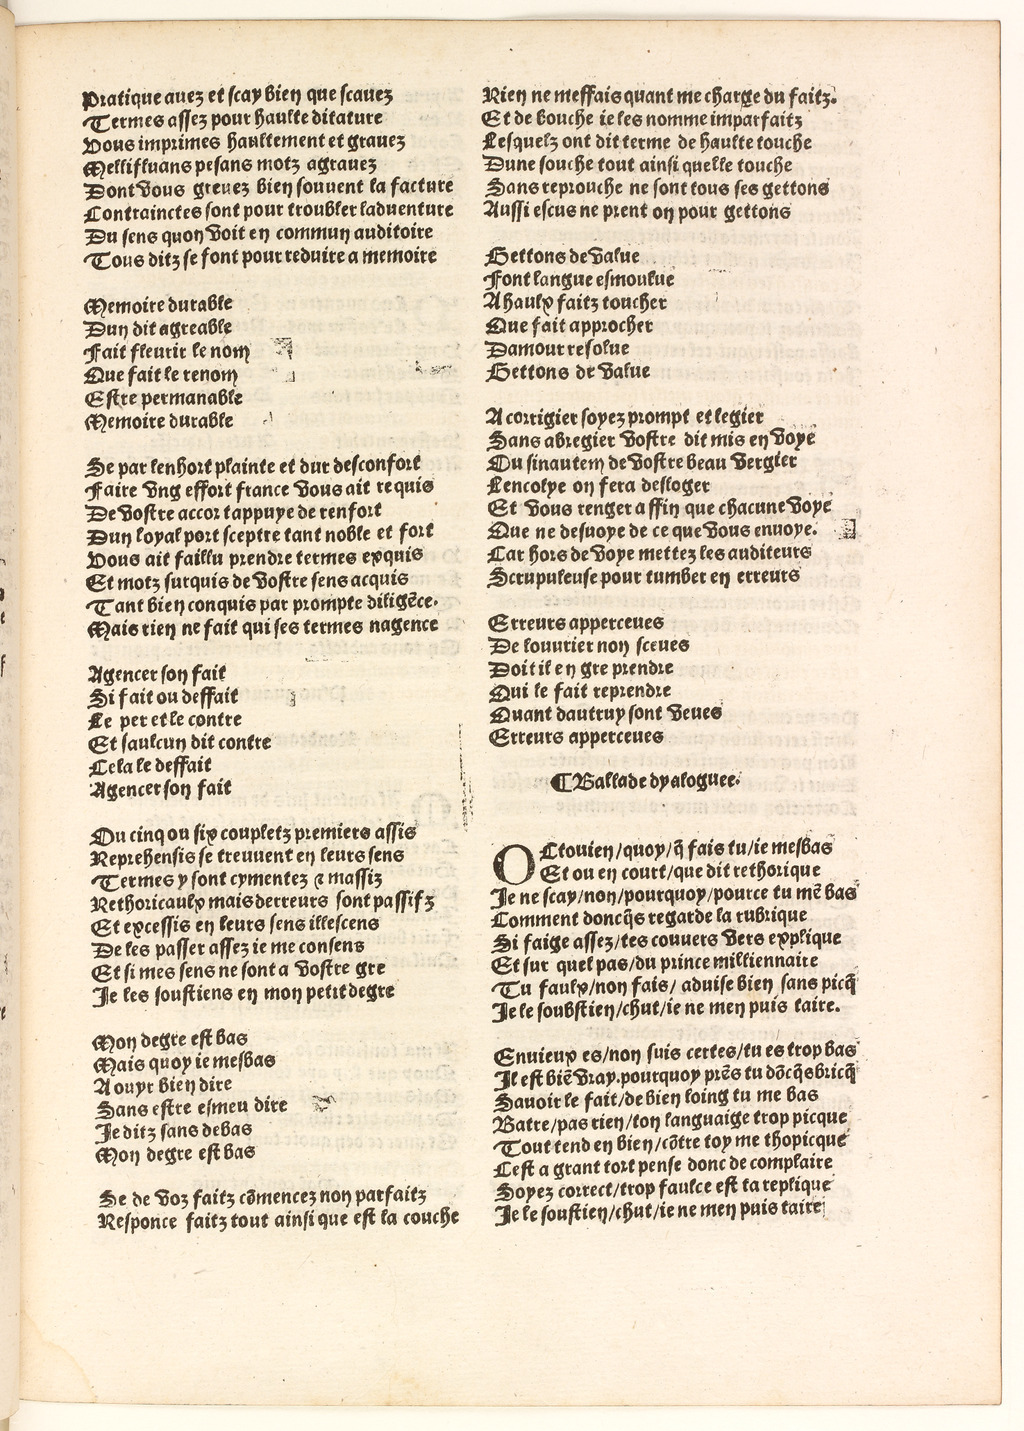 Pratique auez et scay bien que scauez
Termes assez pour haulte ditature
Vous imprimes haultement et grauez
Mellifluans pesans motz agrauez
Dont vous greuez bien souuent la facture
Contrainctes sont pour troubler laduenture
Du sens quon voit en commun auditoire
Tous ditz se font pour reduire a memoire

Memoire durable
Dun dit agreable
Fait fleurir le nom
Que fait le renom
Estre permanable
Memoire durable

Se par lenhort plainte et dur desconfort
Faire vng effort france vous ait requis
De vostre accort appuye de renfort
Dun loyal port sceptre tant noble et fort
Vous ait faillu prendre termes exquis
Et motz surquis de vostre sens acquis
Tant bien conquis par prompte diligēce.
Mais rien ne fait qui ses termes nagence

Agencer son fait
Si fait ou deffait
Le per et le contre
Et saulcun dit contre
Cela le deffait
Agencer son fait

Ou cinq ou six coupletz premiers assis
Reprehensis se treuuent en leurs sens
Termes y sont cymentez ⁊ massiz
Rethoricaulx mais derreurs sont passifz
Et excessis en leurs sens illescens
De les passer assez ie me consens
Et si mes sens ne sont a vostre gre
Je les soustiens en mon petit degre

Mon degre est bas
Mais quoy ie mesbas
A ouyr bien dire
Sans estre esmeu dire
Je ditz sans debas
Mon degre est bas

Se de voz faitz cōmencez non parfaitz
Responce faitz tout ainsi que est la couche
Rien ne meffais quant me charge du faitz.
Et de bouche ie les nomme imparfaitz
Lesquelz ont dit terme de haulte touche
Dune souche tout ainsi quelle touche
Sans reprouche ne sont tous ses gettons
Aussi escus ne prent on pour gettons

Gettons de value
Font langue esmoulue
A haulx faitz toucher
Que fait approcher
Damour resolue
Gettons de value

A corrigier soyez prompt et legier
Sans abregier vostre dit mis en voye
Ou sinautem de vostre beau vergier
Lencolye on fera desloger
Et vous renger affin que chacune voye
Que ne desuoye de ce que vous enuoye.
Car hors de voye mettez les auditeurs
Scrupuleuse pour tumber en erreurs

Erreurs apperceues
De louurier non sceues
Doit il en gre prendre
Qui le fait reprendre
Quant dautruy sont veues
Erreurs apperceues

¶Ballade dyaloguee.

OCtouien/quoy/q̄ fais tu/ie mesbas
Et ou en court/que dit rethorique
Je ne scay/non/pourquoy/pource tu mē bas
Comment doncq̄s regarde la rubrique
Si faige assez/tes couuers vers explique
Et sur quel pas/du prince milliennaire
Tu faulx/non fais/ aduise bien sans picq̄
Je le soubstien/chut/ie ne men puis taire.

Enuieux es/non suis certes/tu es trop bas
Jl est biē vray.pourquoy prēs tu dōcq̄s bricq̄
Sauoir le fait/de bien loing tu me bas
Batre/pas rien/ton languaige trop picque
Tout tend en bien/cōtre toy me thopicque
Cest a grant tort pense donc de complaire
Soyez correct/trop faulce est ta replique
Je le soustien/chut/ie ne men puis taire